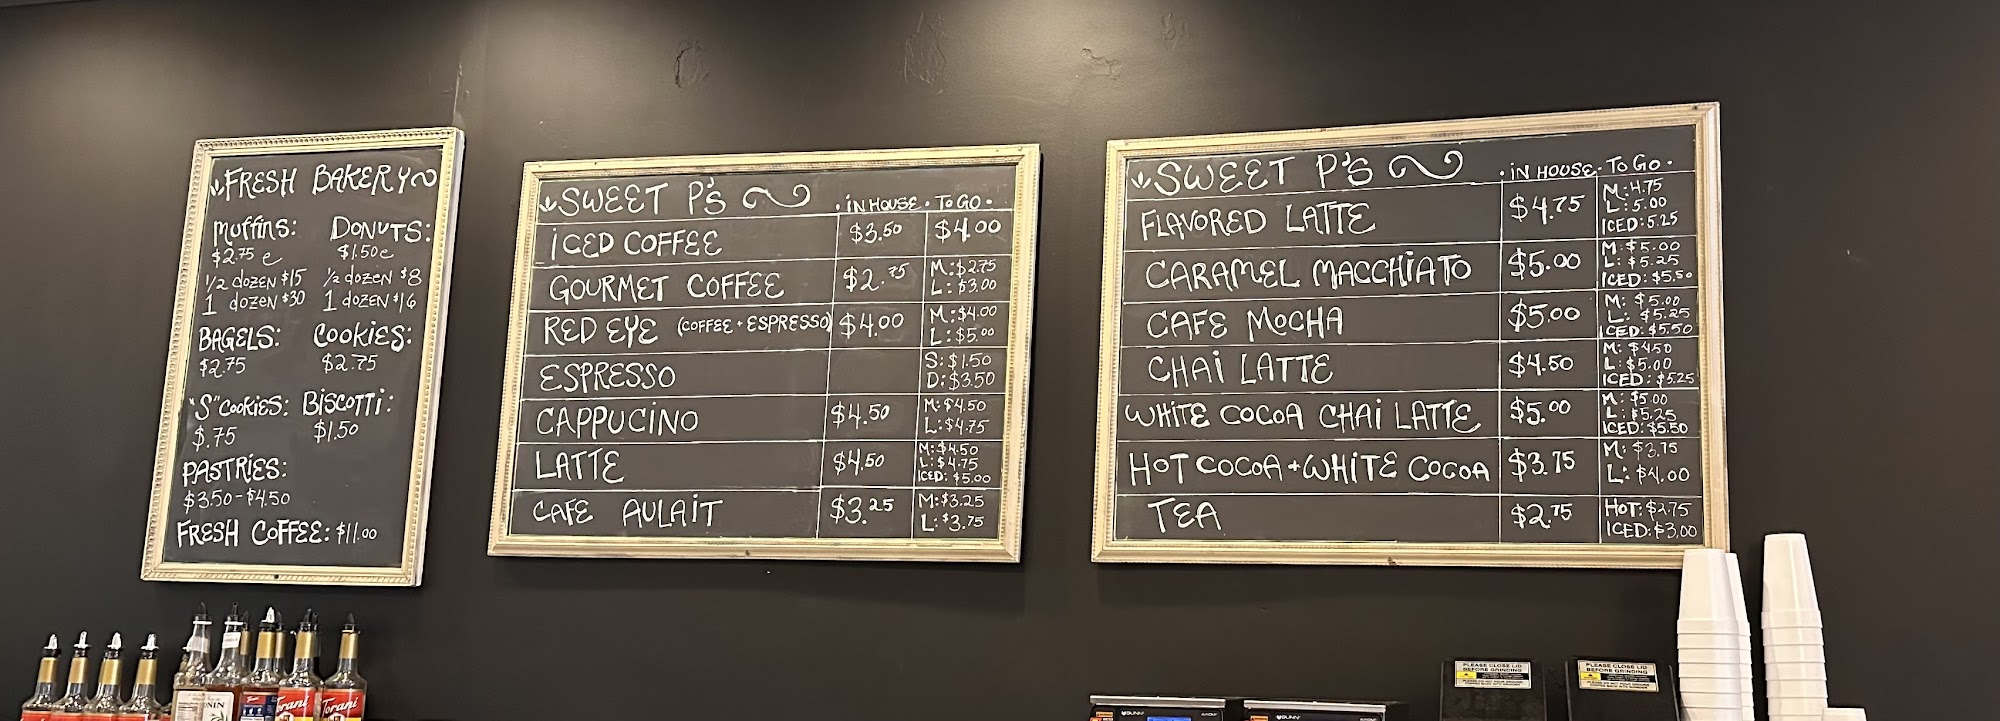 FRESH BAKERY
MUFFINS: DONUTS:
$2.75 e $1.50 e
1/2 DOZEN $15 1/2 DOZEN $8
1 DOZEN $30 1 DOZEN $16
BAGELS: COOKIES:
$2.75 $2.75
"S" COOKIES: BISCOTTI:
$.75 $1.50
PASTRIES:
$3.50-$4.50
FRESH COFFEE: $11.00
SWEET P'S · IN HOUSE · TO GO ·
ICED COFFEE $3.50 $4.00
GOURMET COFFEE $2.75 M: $2.75
L: $3.00
RED EYE (COFFEE + ESPRESSO) $4.00 M: $4.00
L: $5.00
ESPRESSO S: $1.50
D: $3.50
CAPPUCINO $4.50 M: $4.50
L: $4.75
LATTE $4.50 M: $4.50
L: $4.75
ICED: $5.00
CAFE AULAIT $3.25 M: $3.25
L: $3.75
SWEET P'S · IN HOUSE · TO GO ·
FLAVORED LATTE $4.75 M: 4.75
L: 5.00
ICED: 5.25
CARAMEL MACCHIATO $5.00 M: $5.00
L: $5.25
ICED: $5.50
CAFE MOCHA $5.00 M: $5.00
L: $5.25
ICED: $5.50
CHAI LATTE $4.50 M: $4.50
L: $5.00
ICED: $5.25
WHITE COCOA CHAI LATTE $5.00 M: $5.00
L: $5.25
ICED: $5.50
HOT COCOA + WHITE COCOA $3.75 M: $3.75
L: $4.00
TEA $2.75 HOT: $2.75
ICED: $3.00
Torani
Torani
BUNN
BUNN
PLEASE CLOSE LID
BEFORE GRINDING
PLEASE CLOSE LID
BEFORE GRINDING